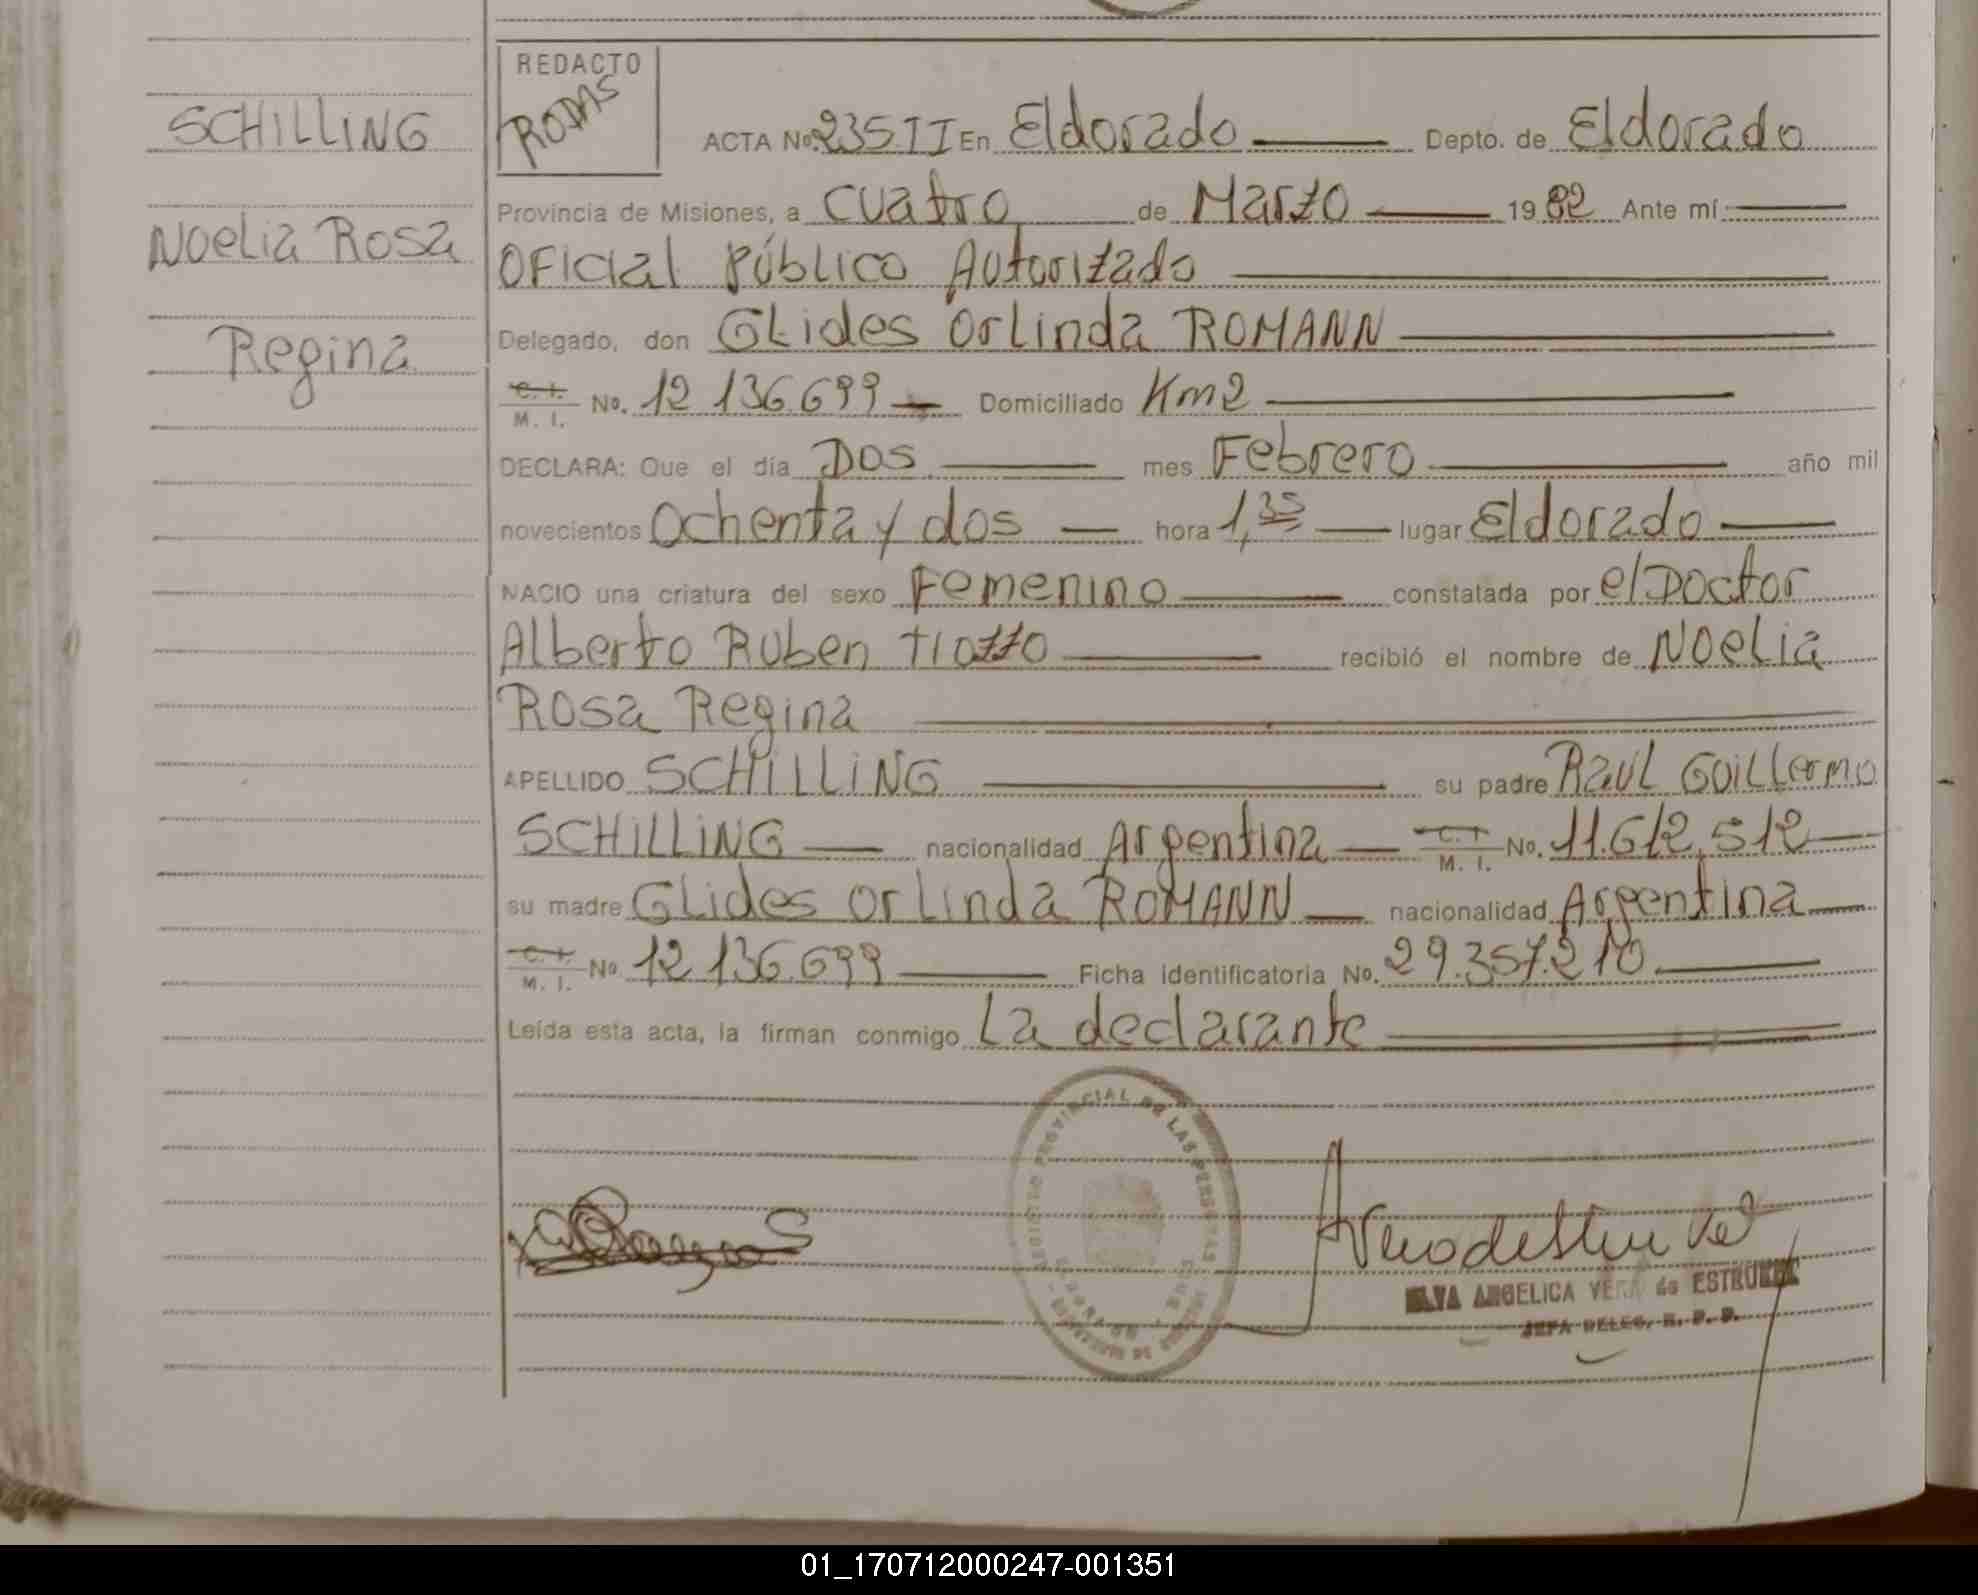 SCHILLING
Noelia Rosa
Regina
REDACTO
RODAS
ACTA No. 235 II En Eldorado Depto. de Eldorado
Provincia de Misiones, a cuatro de Marzo 1982 Ante mí
Oficial Público Autorizado
Delegado, don Glides Orlinda ROMANN
C. I. / M. I. No. 12 136.699 Domiciliado Km2
DECLARA: Que el día Dos mes Febrero año mil
novecientos Ochenta y dos hora 1,35 lugar Eldorado
NACIO una criatura del sexo Femenino constatada por el Doctor
Alberto Ruben recibió el nombre de Noelia
Rosa Regina
APELLIDO SCHILLING su padre Raul Guillermo
SCHILLING nacionalidad Argentina C. I. / M. I. No. 11.612.512
su madre Glides Orlinda ROMANN nacionalidad Argentina
C. I. / M. I. No 12 136.699 Ficha identificatoria No. 29.357.210
Leída esta acta, la firman conmigo La declarante
PROVINCIAL DE LAS PERSONAS
ANGELICA VERA de
JEFA DELEG. R. P. P.
01_170712000247-001351